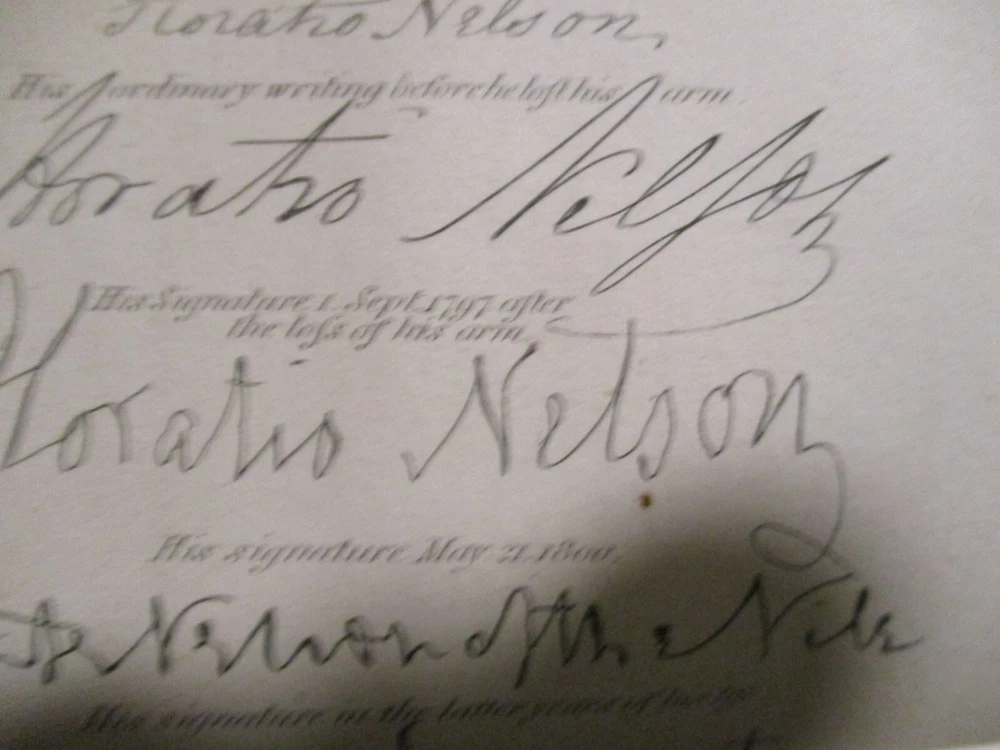 Horatio Nelson,
His ordinary writing before he lost his arm.
Horatio Nelson
His Signature 1. Sept. 1797 after
the loſs of his arm.
Horatio Nelson
His signature May. 21. 1800.
Nelson of the Nile
His signature in the latter years of his